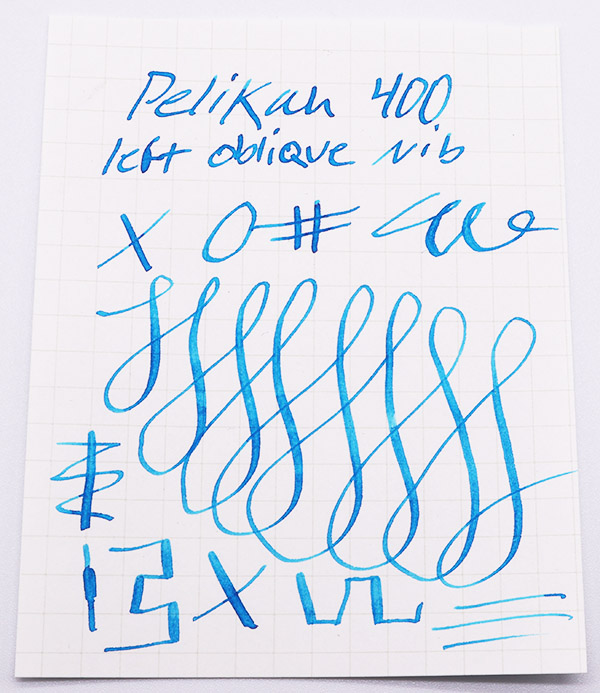 Pelikan 400
left oblique nib
X O # 
X